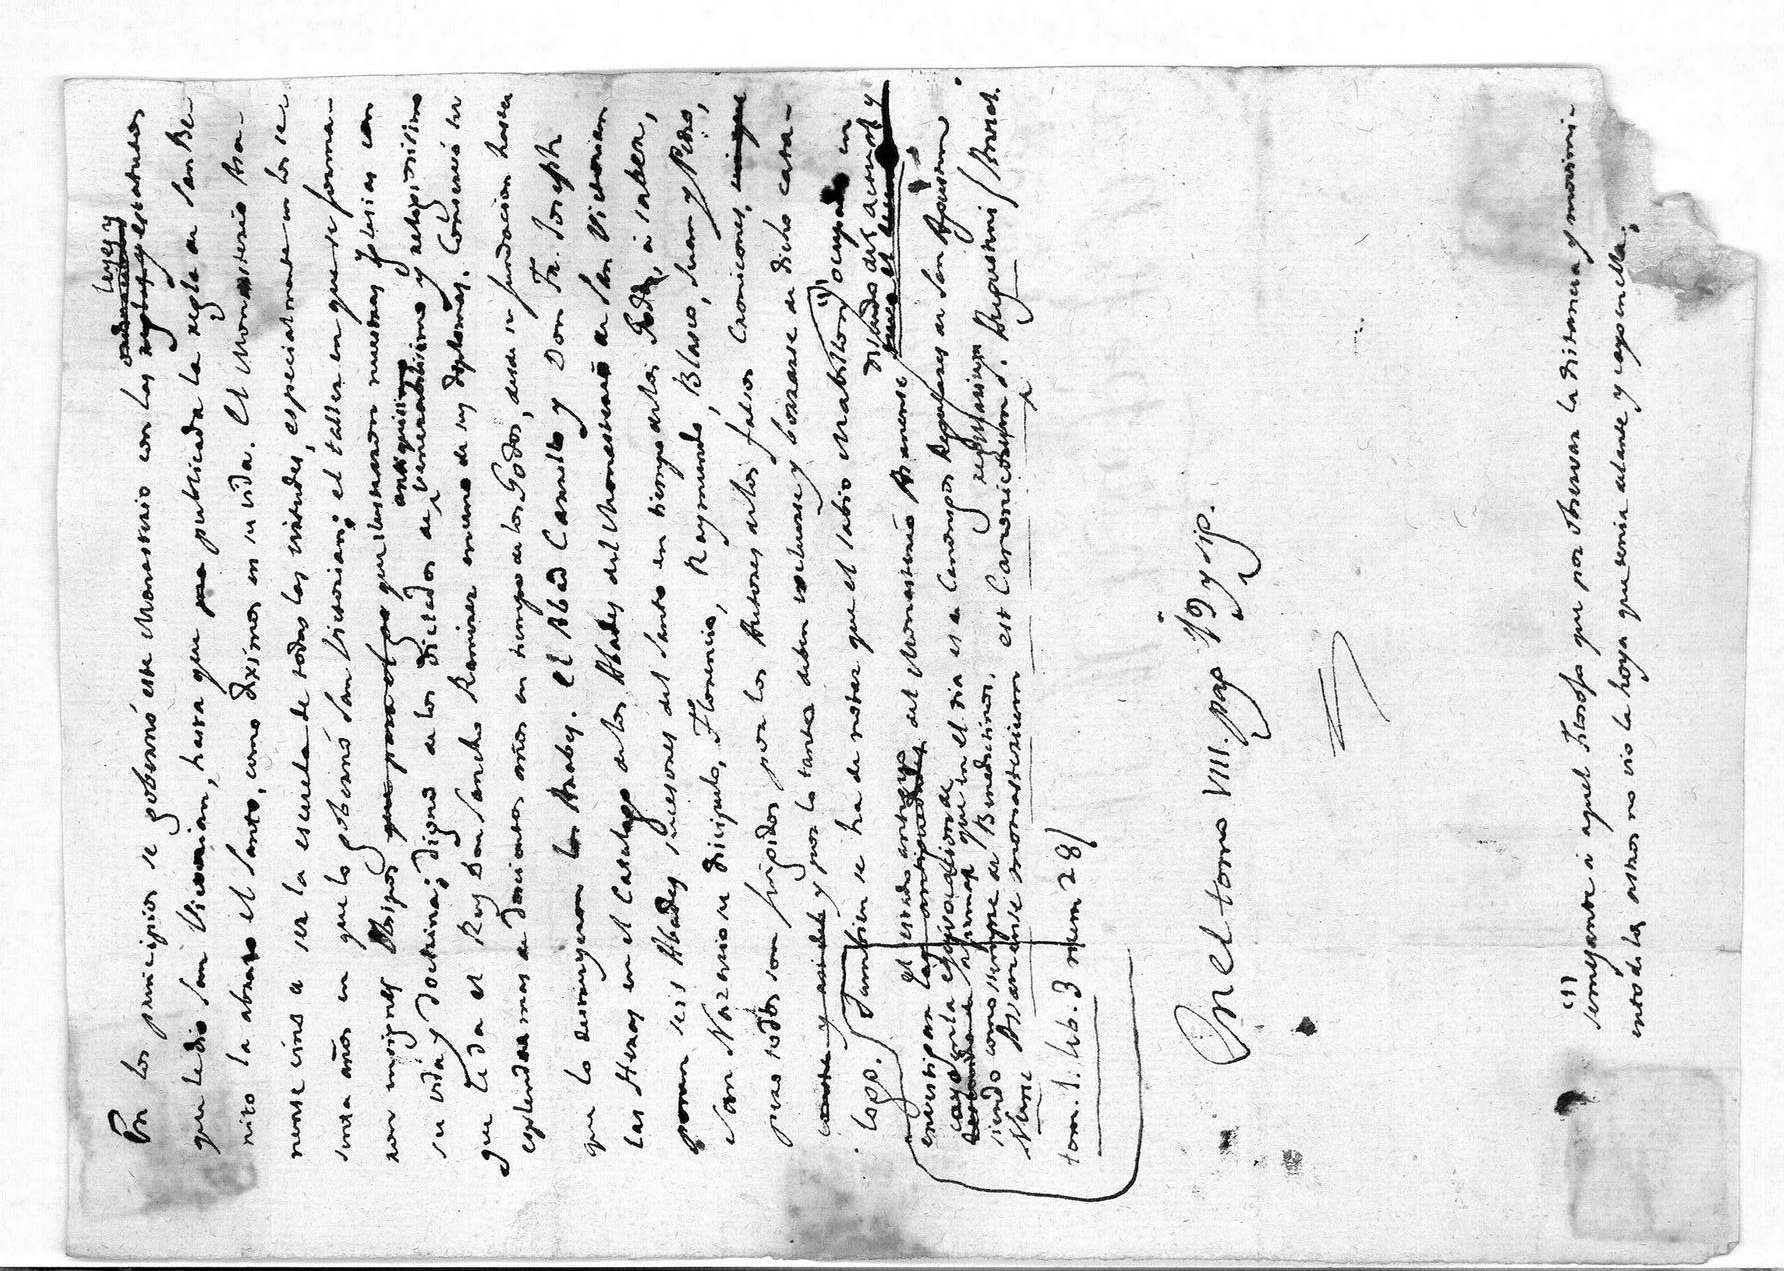 En los principios se gobernó este Monasterio con las leyes y estatutos
que le dio San Victorian, hasta que publicada la regla de San Be-
nito la abrazo el Santo, como diximos en su vida. El Monasterio Asa-
nense vino a ser la escuela de todas las virtudes, especialmente en los se-
senta años en que lo gobernó San Victorian; el taller en que se forma-
ron insignes Obispos que para el que ilustraron nuestras Iglesias con
su vida y doctrina; digno de los dictados de antiquissimo venerabilisimo y religiosisimo
que le da el Rey Don Sancho Ramirez en uno de sus diplomas. Conservó su
esplendor mas de doscientos años en tiempo de los Godos, desde su fundacion hasta
que lo destruyeron los Arabes. El Abad Carrillo y Don Fr. Joseph
las Heras en el Catalogo de los Abades del Monasterio de San Victorian
ponen seis Abades sucesores del Santo en tiempo de los Godos, à saber,
San Nazario su discipulo, Florencio, Raymundo, Blasco, Juan y Pedro,
pero todos son fingidos por los Autores de los falsos Cronicones,
y por lo tanto deben excluirse y borrarse de dicho cata-
logo. Tambien se ha de notar que el sabio Mabillon (1) ocupado en
investigar el estado antiguo del Monasterio Asanense
cayo en la equivocacion de afirmar que en el dia es de Canonigos Reglares de San Agustin
siendo como siempre de Benedictinos.
Nunc Asanense monasterium est Canonicorum regularium S. Augustini / Annal.
tom. 1. lib. 3 num 28 /
En el tomo VIII. pag 19 y sig.
(1)
semejante à aquel Filosofo que por observar la distancia y movimi-
ento de los astros no vió la hoya que tenia delante y cayó en ella.